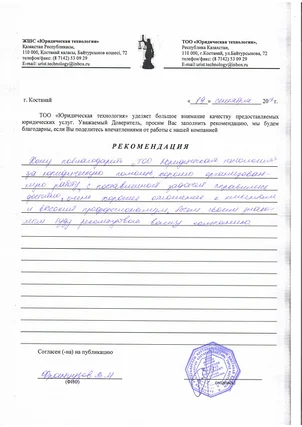 ЖШС «Юридическая технология»
Казақстан Республикасы,
110 000, Қостанай қаласы, Байтұрсынов көшесі, 72
телефон/факс: (8 7142) 53 09 29
E-mail: urist.technology@inbox.ru
ТОО «Юридическая технология»
Республика Казахстан,
110 000, г.Костанай, ул.Байтурсынова 72
телефон/факс: (8 7142) 53 09 29
E-mail: urist.technology@inbox.ru
г. Костанай
« 19 » сентября
ТОО «Юридическая технология» уделяет большое внимание качеству предоставляемых
юридических услуг. Уважаемый Доверитель, просим Вас заполнить рекомендацию, мы будем
благодарны, если Вы поделитесь впечатлениями от работы с нашей компанией
РЕКОМЕНДАЦИЯ
Хочу поблагодарить "ТОО Юридическая технология"
за юридическую помощь хорошо организован-
ную работу, с поставленной задачей справились
достойно, очень хорошее отношение к клиентам
и высокий профессионализм, Всем своим знако-
мым буду рекомендовать вашу компанию
Согласен (-на) на публикацию
(ФИО)
(подпись)